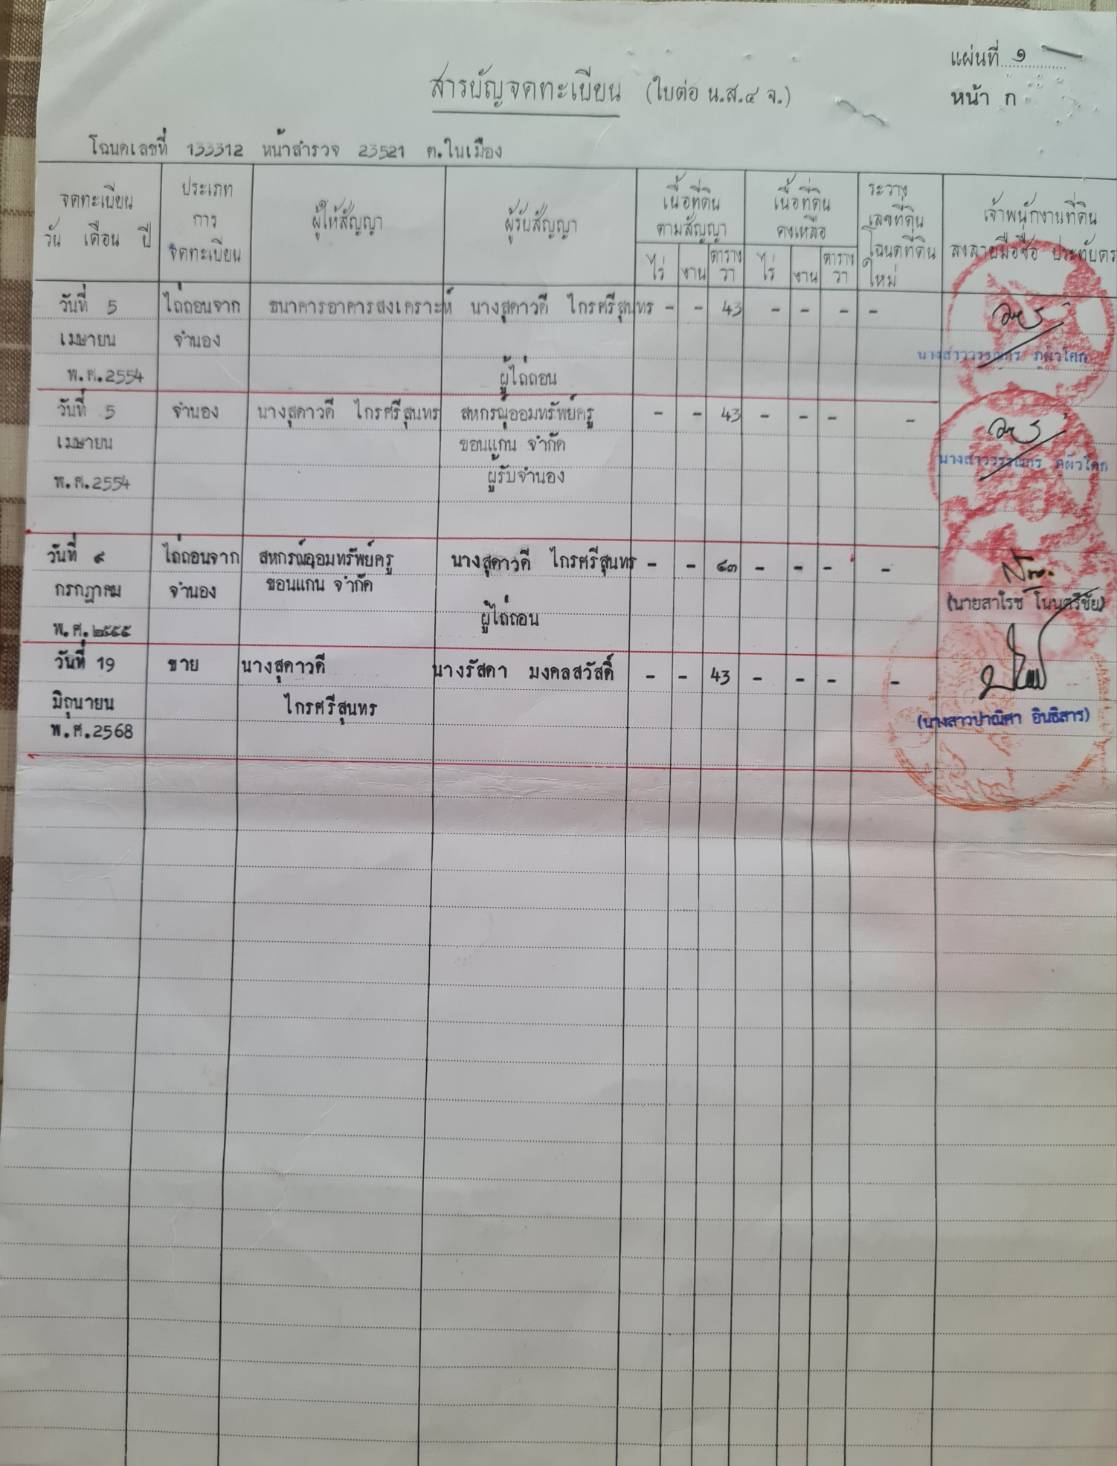 แผ่นที่ ๑
สารบัญจดทะเบียน (ใบต่อ น.ส.๔ จ.)
หน้า ก
โฉนดเลขที่ 133312 หน้าสำรวจ 23521 ต.ในเมือง
จดทะเบียน วัน เดือน ปี
ประเภท การ จดทะเบียน
ผู้ให้สัญญา
ผู้รับสัญญา
เนื้อที่ดิน ตามสัญญา
ไร่ งาน ตาราง วา
เนื้อที่ดิน คงเหลือ
ไร่ งาน ตาราง วา
ระวาง เลขที่ดิน โฉนดที่ดิน ใหม่
เจ้าพนักงานที่ดิน ลงลายมือชื่อ ประทับตรา
วันที่ 5 ไถ่ถอนจาก ธนาคารอาคารสงเคราะห์ นางสุดาวดี ไกรศรีสุนทร - - 43 - - - -
เมษายน จำนอง
นางสาววรรณกร ภูผิวโคก
พ.ศ.2554 ผู้ไถ่ถอน
วันที่ 5 จำนอง นางสุดาวดี ไกรศรีสุนทร สหกรณ์ออมทรัพย์ครู - - 43 - - - -
เมษายน ขอนแก่น จำกัด
นางสาววรรณกร ภูผิวโคก
พ.ศ.2554 ผู้รับจำนอง
วันที่ ๙ ไถ่ถอนจาก สหกรณ์ออมทรัพย์ครู นางสุดาวดี ไกรศรีสุนทร - - ๔๓ - - - -
กรกฎาคม จำนอง ขอนแก่น จำกัด
(นายสาโรช โนนศรีชัย)
พ.ศ.๒๕๕๕ ผู้ไถ่ถอน
วันที่ 19 ขาย นางสุดาวดี นางรัสดา มงคลสวัสดิ์ - - 43 - - - -
มิถุนายน ไกรศรีสุนทร
(นางสาวปาณิศา อินธิสาร)
พ.ศ.2568